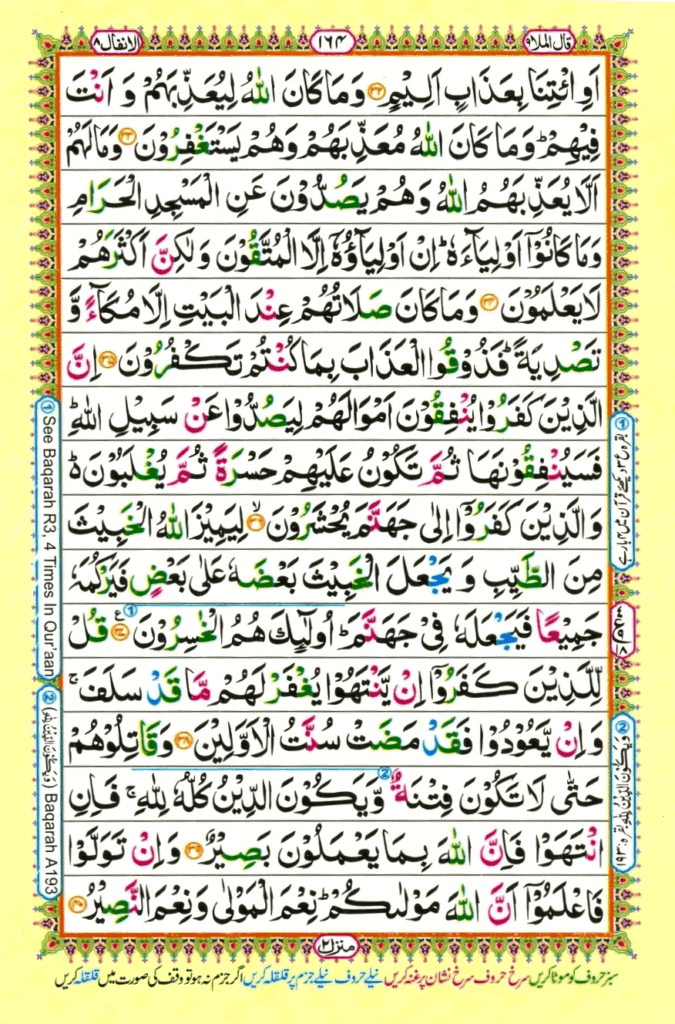 قال الملا۹
۱۶۴
الانفال۸
اَوِ ائْتِنَا بِعَذَابٍ اَلِيْمٍ ﴿۳۲﴾ وَمَا كَانَ اللّٰهُ لِيُعَذِّبَهُمْ وَ اَنْتَ
فِيْهِمْ ؕ وَمَا كَانَ اللّٰهُ مُعَذِّبَهُمْ وَهُمْ يَسْتَغْفِرُوْنَ ﴿۳۳﴾ وَمَا لَهُمْ
اَلَّا يُعَذِّبَهُمُ اللّٰهُ وَهُمْ يَصُدُّوْنَ عَنِ الْمَسْجِدِ الْحَرَامِ
وَمَا كَانُوْۤا اَوْلِيَآءَهٗ ؕ اِنْ اَوْلِيَآؤُهٗۤ اِلَّا الْمُتَّقُوْنَ وَلٰكِنَّ اَكْثَرَهُمْ
لَا يَعْلَمُوْنَ ﴿۳۴﴾ وَمَا كَانَ صَلَاتُهُمْ عِنْدَ الْبَيْتِ اِلَّا مُكَآءً وَّ
تَصْدِيَةً ؕ فَذُوْقُوا الْعَذَابَ بِمَا كُنْتُمْ تَكْفُرُوْنَ ﴿۳۵﴾ اِنَّ
الَّذِيْنَ كَفَرُوْا يُنْفِقُوْنَ اَمْوَالَهُمْ لِيَصُدُّوْا عَنْ سَبِيْلِ اللّٰهِ ؕ
فَسَيُنْفِقُوْنَهَا ثُمَّ تَكُوْنُ عَلَيْهِمْ حَسْرَةً ثُمَّ يُغْلَبُوْنَ ؕ
وَالَّذِيْنَ كَفَرُوْۤا اِلٰى جَهَنَّمَ يُحْشَرُوْنَ ﴿۳۶﴾ۙ لِيَمِيْزَ اللّٰهُ الْخَبِيْثَ
مِنَ الطَّيِّبِ وَ يَجْعَلَ الْخَبِيْثَ بَعْضَهٗ عَلٰى بَعْضٍ فَيَرْكُمَهٗ
جَمِيْعًا فَيَجْعَلَهٗ فِيْ جَهَنَّمَ ؕ اُولٰٓئِكَ هُمُ الْخٰسِرُوْنَ ﴿۳۷﴾ع قُلْ
لِّلَّذِيْنَ كَفَرُوْۤا اِنْ يَّنْتَهُوْا يُغْفَرْ لَهُمْ مَّا قَدْ سَلَفَ ۚ
وَاِنْ يَّعُوْدُوْا فَقَدْ مَضَتْ سُنَّتُ الْاَوَّلِيْنَ ﴿۳۸﴾ وَقَاتِلُوْهُمْ
حَتّٰى لَا تَكُوْنَ فِتْنَةٌ وَّيَكُوْنَ الدِّيْنُ كُلُّهٗ لِلّٰهِ ۚ فَاِنِ
انْتَهَوْا فَاِنَّ اللّٰهَ بِمَا يَعْمَلُوْنَ بَصِيْرٌ ﴿۳۹﴾ وَاِنْ تَوَلَّوْا
فَاعْلَمُوْۤا اَنَّ اللّٰهَ مَوْلٰىكُمْ ؕ نِعْمَ الْمَوْلٰى وَنِعْمَ النَّصِيْرُ ﴿۴۰﴾
① See Baqarah R3, 4 Times In Qur'aan
② (وَيَكُوْنَ الدِّيْنُ لِلّٰهِ) Baqarah A193
② وَيَكُوْنَ الدِّيْنُ لِلّٰهِ بقرہ: ۱۹۳
منزل۲
سبز حروف کو موٹا کریں سرخ حروف سرخ نشان پر غنہ کریں نیلے حروف نیلے جزم پر قلقلہ کریں اگر جزم نہ ہو تو وقف کی صورت میں قلقلہ کریں